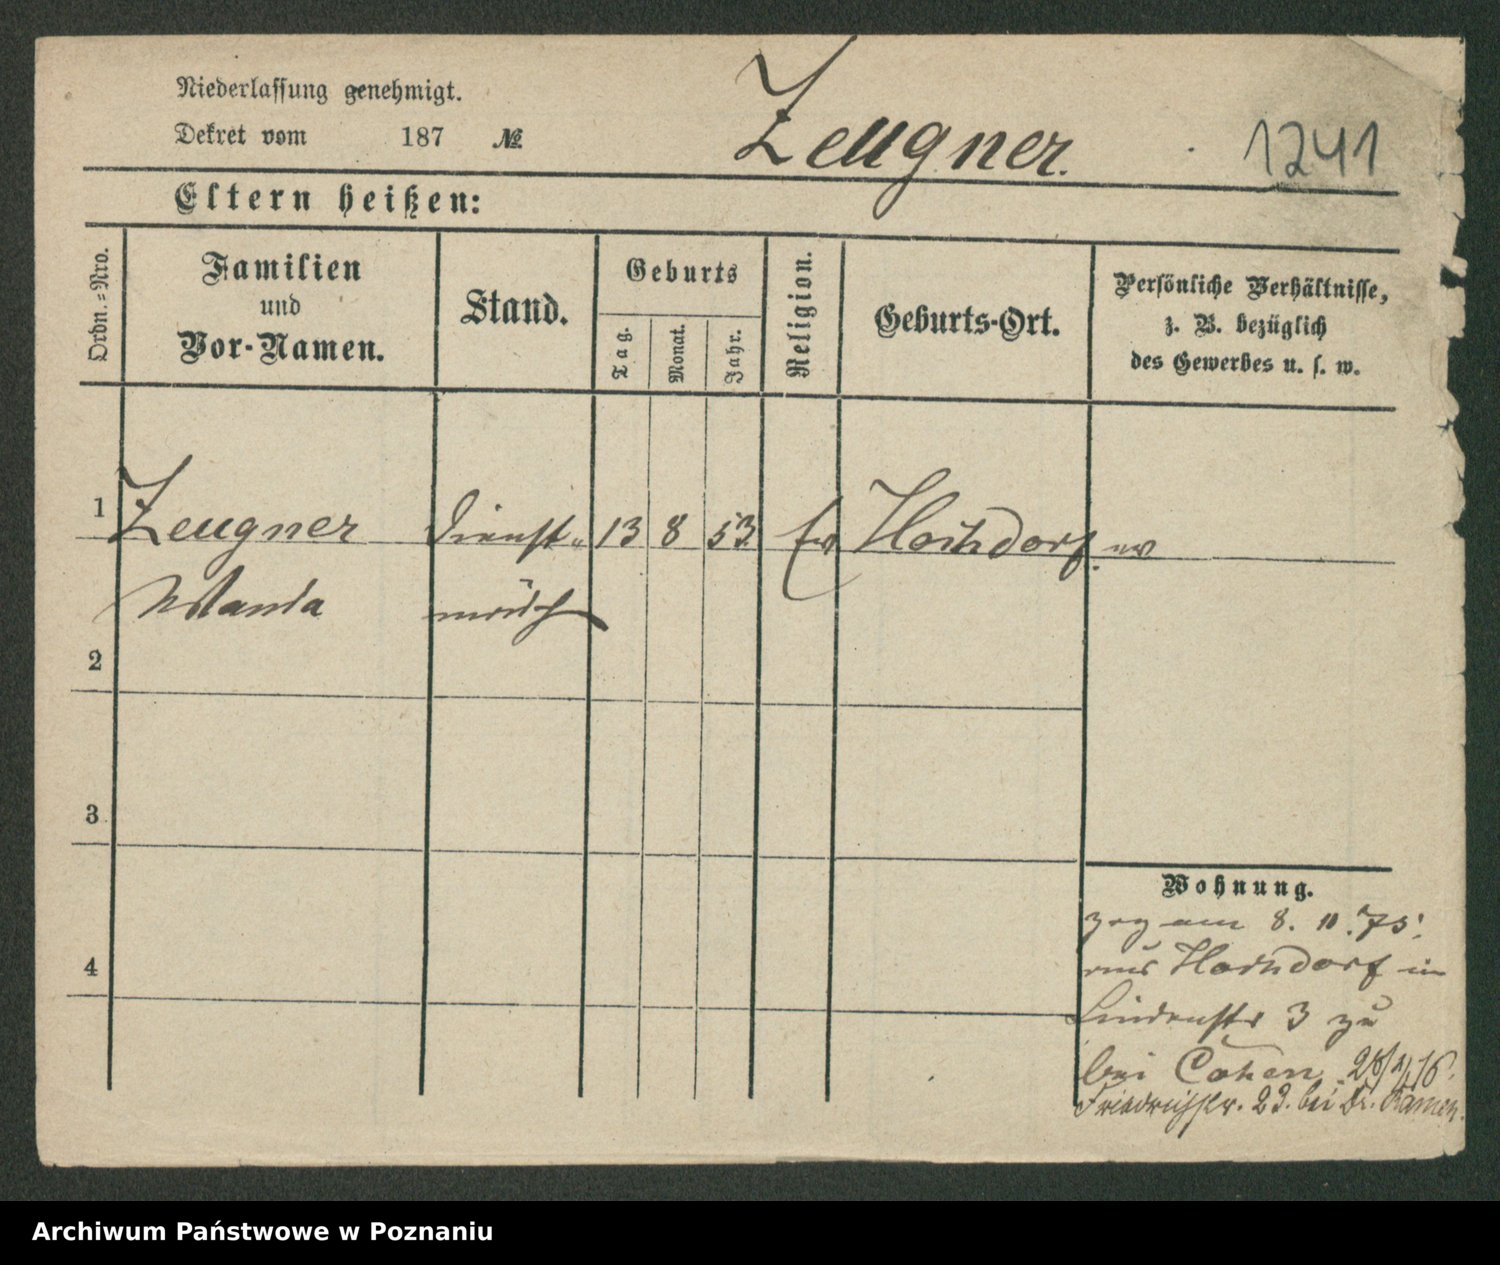 Niederlassung genehmigt.
Dekret vom 187 №
Zeugner.
1241
Eltern heißen:
Ordn.=Nro.
Familien
und
Vor-Namen.
Stand.
Geburts
Tag.
Monat.
Jahr.
Religion.
Geburts-Ort.
Persönliche Verhältnisse,
z. B. bezüglich
des Gewerbes u. s. w.
1 Zeugner Dienst- 13 8 53 ev Hochdorf
Wanda mädch
2
3
4
Wohnung.
zog am 8. 11. 75.
aus Hochdorf in
Lindenstr 3 zu
bei Cohen
Friedrichstr. 23. bei Dr.
Archiwum Państwowe w Poznaniu